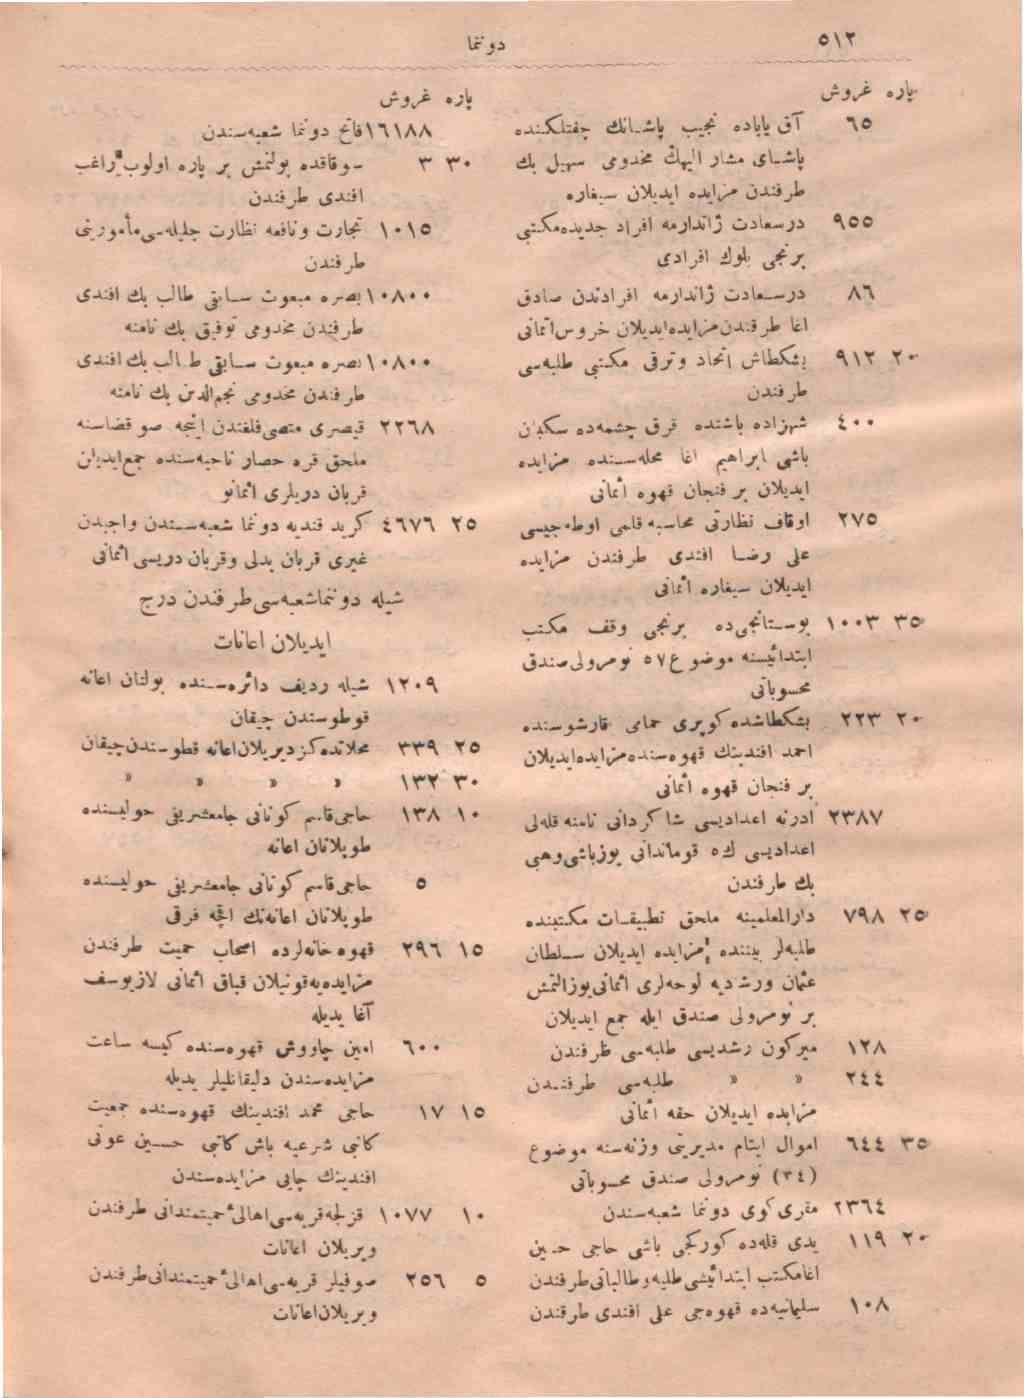 ٥١٢
دوننما
پاره غروش
٦٥ آق باباده نجیب پاشانك چفتلکنده
پاشای مشار الیهك مخدومی سهیل بك
طرفندن مزایده ایدیلان سیغاره
٩٥٥ درسعادت ژاندارمه افراد جدیده‌مکتبی
برنجی بلوك افرادی
٨٦ درسعادت ژاندارمه افرادندن صادق
اغا طرفندن‌مزایده‌ایدیلان خروس‌اثمانی
٢٠ ٩١٢ بشکطاش اتحاد وترقی مکتبی طلبه‌سی
طرفندن
٤٠٠ شهزاده باشنده قرق چشمه‌ده سکبان
باشی ابراهیم اغا محله‌سنده مزایده
ایدیلان بر فنجان قهوه اثمانی
٢٧٥ اوقاف نظارتی محاسبه قلمی اوطه‌جیسی
علی رضا افندی طرفندن مزایده
ایدیلان سیغاره اثمانی
٣٥ ١٠٠٣ بوستانجی‌ده برنجی وقف مکتب
ابتدائیسنه موضوع ٥٧ نومرولی صندق
محسوباتی
٢٠ ٢٢٣ بشکطاشده کوپری حمامی قارشوسنده
احمد افندینك قهوه‌سنده‌مزایده‌ایدیلان
بر فنجان قهوه اثمانی
٢٣٨٧ ادرنه اعدادیسی شاکردانی نامنه قله‌لی
اعدادیسی قوماندانی یوزباشی وهبی
بك طرفندن
٢٥ ٧٩٨ دارالمعلمینه ملحق تطبیقات مکتبنده
طلبه‌لر بیننده مزایده ایدیلان سلطان
عثمان ورشدیه لوحه‌لری اثمانی یوزالتمش
بر نومرولی صندق ایله جمع ایدیلان
١٢٨ میرکون رشدیسی طلبه‌سی طرفندن
٢٤٤ » » طلبه‌سی طرفندن
مزایده ایدیلان حقه اثمانی
٣٥ ٦٤٤ اموال ایتام مدیریتی وزنه‌سنه موضوع
(٣٤) نومرولی صندق محسوباتی
٢٣٦٤ مقری‌کوی دوننما شعبه‌سندن
٢٠ ١١٩ یدی قله‌ده کورکجی باشی حاجی حسین
اغامکتب ابتدائیسی طلبه‌وطالباتی‌طرفندن
١٠٨ سلیمانیه‌ده قهوه‌جی علی افندی طرفندن
پاره غروش
١٦١٨٨ فاتح دوننما شعبه‌سندن
٣٠ ٣ سوقاقده بولنمش بر پاره اولوب راغب
افندی طرفندن
١٠١٥ تجارت ونافعه نظارت جلیله‌سی‌مأمورینی
طرفندن
١٠٨٠٠ بصره مبعوث سابقی طالب بك افندی
طرفندن مخدومی توفیق بك نامنه
١٠٨٠٠ بصره مبعوث سابقی طالب بك افندی
طرفندن مخدومی نجم‌الدین بك نامنه
٢٢٦٨ قیصری متصرفلغندن اینجه صو قضاسنه
ملحق قره حصار ناحیه‌سنده جمع‌ایدیلن
قربان دریلری اثمانی
٢٥ ٤٦٧٦ کرید قندیه دوننما شعبه‌سندن واجبدن
غیری قربان بدلی وقربان دریسی اثمانی
شیله دوننماشعبه‌سی‌طرفندن درج
ایدیلان اعانات
١٢٠٩ شیله ردیف دائره‌سنده بولنان اعانه
قوطوسندن چیقان
٢٥ ٣٣٩ محلاتده‌کزدیریلان‌اعانه قطوسندن‌چیقان
٣٠ ١٣٢ » » » »
١٠ ١٣٨ حاجی‌قاسم کونانی جامعشریفی حولیسنده
طوپلانان اعانه
٥ حاجی‌قاسم کونانی جامعشریفی حولیسنده
طوپلانان اعانه‌نك اقچه فرقی
١٥ ٢٩٦ قهوه‌خانه‌لرده اصحاب حمیت طرفندن
مزایده‌یه‌قونیلان قباق اثمانی لازیوسف
آغا یدیله
٦٠٠ امین چاووش قهوه‌سنده کیسه ساعت
مزایده‌سندن دلیقانلیلر یدیله
١٥ ١٧ حاجی محمد افندینك قهوه‌سنده جمعیت
کاتبی شرعیه باش کاتبی حسین عونی
افندینك چایی مزایده‌سندن
١٠ ١٠٧٧ قزلجه‌قریه‌سی‌اهالیٔ حمیتمندانی طرفندن
ویریلان اعانات
٥ ٢٥٦ صوفیلر قریه‌سی‌اهالیٔ حمیتمندانی‌طرفندن
ویریلان‌اعانات